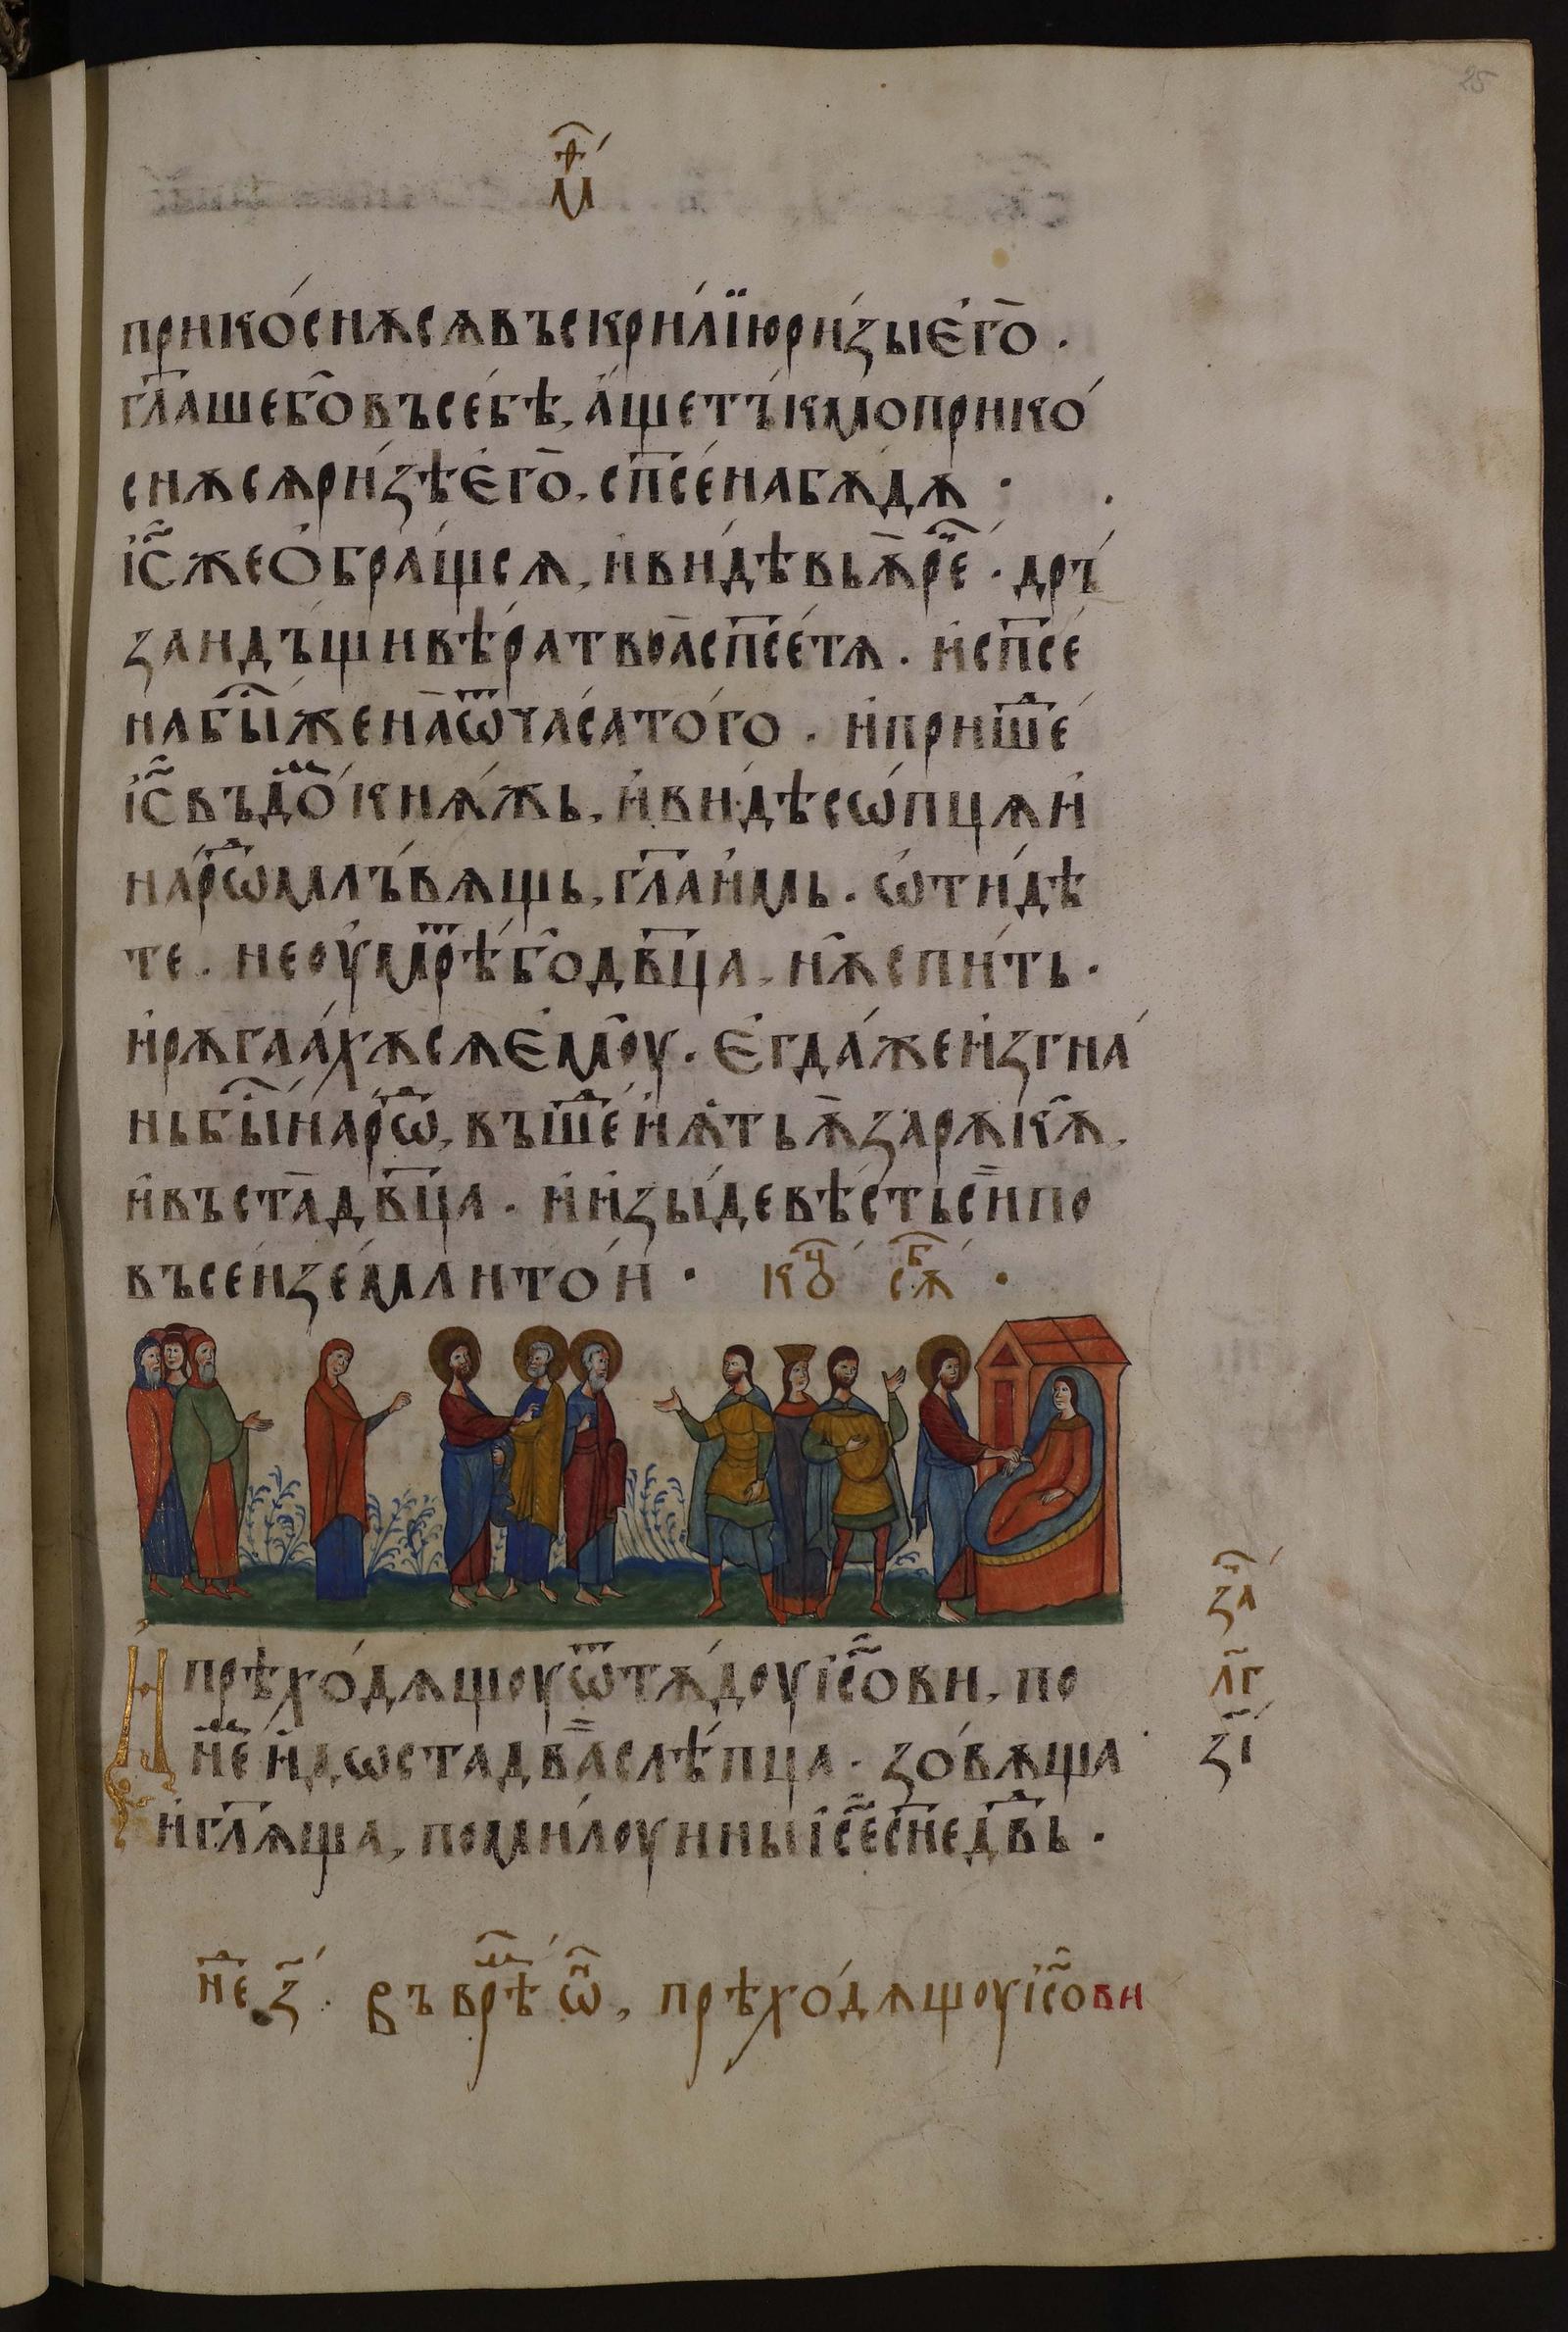 25
мⷴ҇
прико́снѫсѧвъскри́лїюри́зыєго̑.
гл҃ашебо̑въсе́бѣ, а́щетъ́кмоприко́
снѫсѧри́зѣєго̑, сп҃се́набѫдѫ ·
і҆с҃жеѻбра́щсѧ, и҆ви́дѣвьѫ̀рⷱ҇е́ · дръ́
заидъ́щивѣ́ратвоа̀сп҃се́тѧ. и҆сп҃се́
набы́ⷭ҇женаѿча́сато́го. и҆пришⷣе́
і҆с҃въдоⷨ́кнѧ́жь, и҆ви́дѣсѡ́пцѧи҆
наро́ⷣмлъ́вѧщь, гл҃аи҆мь. ѡ҆ти́дѣ
те. неоу҆мⷬ҇рѣ́бо̑дв҃ца, нѫ̑спи́ть.
и҆рѫгаа́хѫсѧє҆моу̑. є҆гда́жеи҆згна́
ньбы́ⷭ҇нарѡⷣ, въшⷣе́и҆ѧ́тьѫ̀зарѫкѫ̑,
и҆въстадв҃ца. и҆и҆зы́девѣ́стьсі̀ипо
въсе́изе́млито́и · коⷱ҇у́ сѫⷠ҇ ·
И҆прѣхо́дѧщоуѿтѫ́доуі҆с҃ови, по
не́ⷨи҆доста двас̀лѣ́пца. зо́вѫща
и҆гл҃ѧща, поми́лоуиныі҆с҃есн҃едв҃ь.
заⷱ҇
л҃г
з҃і
неⷣ з҃. въврⷨѣ ѡⷩ, прѣхо́дѧщоуі҆с҃ови